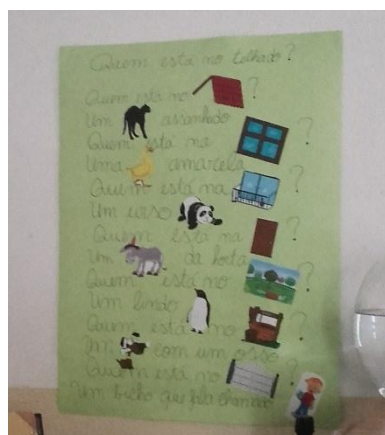 Quem está no telhado?
Quem está no ?
Um assanhado
Quem está na ?
Uma amarela
Quem está na ?
Um urso
Quem está na ?
Um da horta
Quem está no ?
Um lindo
Quem está no ?
Um com um osso
Quem está no ?
Um bicho que fala